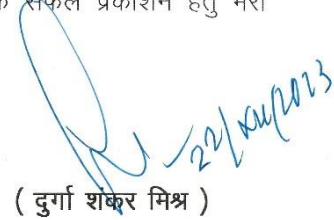 सफल प्रकाशन हेतु मेरी
22/XII/2023
( दुर्गा शंकर मिश्र )